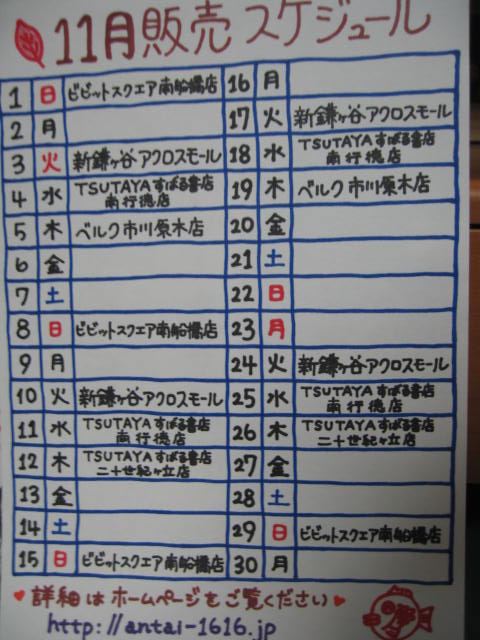 11月販売スケジュール
1 日 ビビットスクエア南船橋店
2 月
3 火 新鎌ヶ谷アクロスモール
4 水 TSUTAYAすばる書店
南行徳店
5 木 ベルク市川原木店
6 金
7 土
8 日 ビビットスクエア南船橋店
9 月
10 火 新鎌ヶ谷アクロスモール
11 水 TSUTAYAすばる書店
南行徳店
12 木 TSUTAYAすばる書店
二十世紀ヶ丘店
13 金
14 土
15 日 ビビットスクエア南船橋店
16 月
17 火 新鎌ヶ谷アクロスモール
18 水 TSUTAYAすばる書店
南行徳店
19 木 ベルク市川原木店
20 金
21 土
22 日
23 月
24 火 新鎌ヶ谷アクロスモール
25 水 TSUTAYAすばる書店
南行徳店
26 木 TSUTAYAすばる書店
二十世紀ヶ立店
27 金
28 土
29 日 ビビットスクエア南船橋店
30 月
♥詳細はホームページをご覧ください♥
http://antai-1616.jp